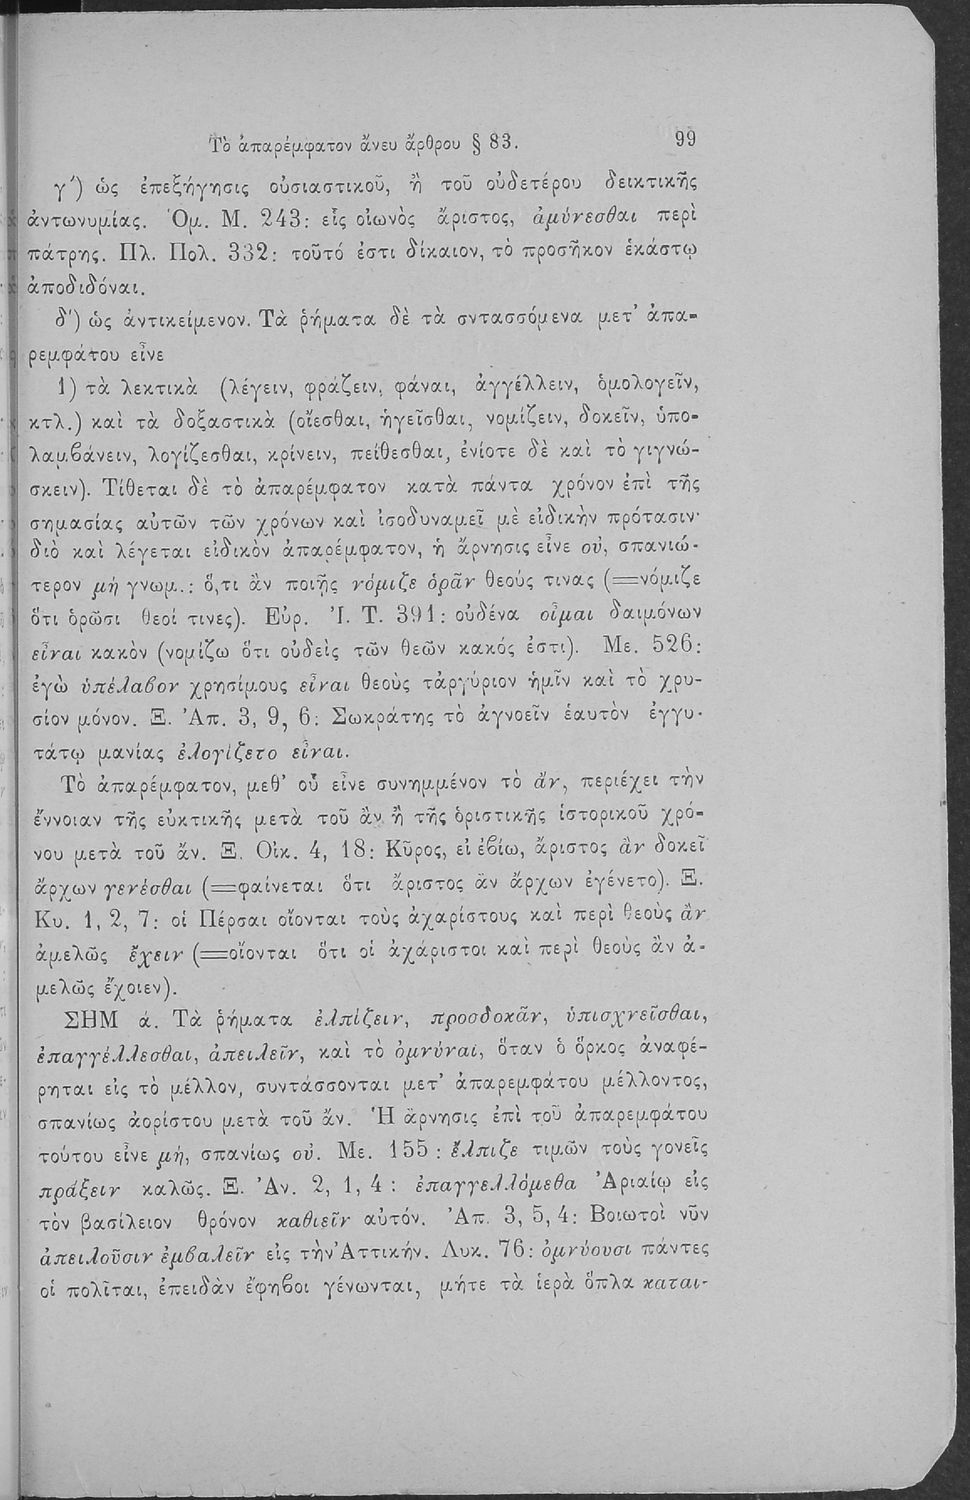 Τὸ ἀπαρέμφατον ἄνευ ἄρθρου § 83. 99
γ´) ὡς ἐπεξήγησις οὐσιαστικοῦ, ἢ τοῦ οὐδετέρου δεικτικῆς
ἀντωνυμίας. Ὁμ. Μ. 243: εἷς οἰωνὸς ἄριστος, ἀμύνεσθαι περὶ
πάτρης. Πλ. Πολ. 332: τοῦτό ἐστι δίκαιον, τὸ προσῆκον ἑκάστῳ
ἀποδιδόναι.
δ´) ὡς ἀντικείμενον. Τὰ ῥήματα δὲ τὰ σντασσόμενα μετ’ ἀπα-
ρεμφάτου εἶνε
1) τὰ λεκτικὰ (λέγειν, φράζειν, φάναι, ἀγγέλλειν, ὁμολογεῖν,
κτλ.) καὶ τὰ δοξαστικὰ (οἴεσθαι, ἡγεῖσθαι, νομίζειν, δοκεῖν, ὑπο-
λαμβάνειν, λογίζεσθαι, κρίνειν, πείθεσθαι, ἐνίοτε δὲ καὶ τὸ γιγνώ-
σκειν). Τίθεται δὲ τὸ ἀπαρέμφατον κατὰ πάντα χρόνον ἐπὶ τῆς
σημασίας αὐτῶν τῶν χρόνων καὶ ἰσοδυναμεῖ μὲ εἰδικὴν πρότασιν·
διὸ καὶ λέγεται εἰδικὸν ἀπαρέμφατον, ἡ ἄρνησις εἶνε οὐ, σπανιώ-
τερον μὴ γνωμ.: ὅ,τι ἂν ποιῇς νόμιζε ὁρᾶν θεούς τινας (=νόμιζε
ὅτι ὁρῶσι θεοί τινες). Εὐρ. Ἰ. Τ. 391: οὐδένα οἶμαι δαιμόνων
εἶναι κακὸν (νομίζω ὅτι οὐδεὶς τῶν θεῶν κακός ἐστι). Με. 526:
ἐγὼ ὑπέλαβον χρησίμους εἶναι θεοὺς τἀργύριον ἡμῖν καὶ τὸ χρυ-
σίον μόνον. Ξ. Ἀπ. 3, 9, 6: Σωκράτης τὸ ἀγνοεῖν ἑαυτὸν ἐγγυ-
τάτῳ μανίας ἐλογίζετο εἶναι.
Τὸ ἀπαρέμφατον, μεθ’ οὗ εἶνε συνημμένον τὸ ἄν, περιέχει τὴν
ἔννοιαν τῆς εὐκτικῆς μετὰ τοῦ ἂν ἢ τῆς ὁριστικῆς ἱστορικοῦ χρό-
νου μετὰ τοῦ ἄν. Ξ. Οἰκ. 4, 18: Κῦρος, εἰ ἐβίω, ἄριστος ἂν δοκεῖ
ἄρχων γενέσθαι (=φαίνεται ὅτι ἄριστος ἂν ἄρχων ἐγένετο). Ξ.
Κυ. 1, 2, 7: οἱ Πέρσαι οἴονται τοὺς ἀχαρίστους καὶ περὶ θεοὺς ἂν
ἀμελῶς ἔχειν (=οἴονται ὅτι οἱ ἀχάριστοι καὶ περὶ θεοὺς ἂν ἀ-
μελῶς ἔχοιεν).
ΣΗΜ ά. Τὰ ῥήματα ἐλπίζειν, προσδοκᾶν, ὑπισχνεῖσθαι,
ἐπαγγέλλεσθαι, ἀπειλεῖν, καὶ τὸ ὀμνύναι, ὅταν ὁ ὅρκος ἀναφέ-
ρηται εἰς τὸ μέλλον, συντάσσονται μετ’ ἀπαρεμφάτου μέλλοντος,
σπανίως ἀορίστου μετὰ τοῦ ἄν. Ἡ ἄρνησις ἐπὶ τοῦ ἀπαρεμφάτου
τούτου εἶνε μή, σπανίως οὐ. Με. 155: ἔλπιζε τιμῶν τοὺς γονεῖς
πράξειν καλῶς. Ξ. Ἀν. 2, 1, 4: ἐπαγγελλόμεθα Ἀριαίῳ εἰς
τὸν βασίλειον θρόνον καθιεῖν αὐτόν. Ἀπ. 3, 5, 4: Βοιωτοὶ νῦν
ἀπειλοῦσιν ἐμβαλεῖν εἰς τὴν Ἀττικήν. Λυκ. 76: ὀμνύουσι πάντες
οἱ πολῖται, ἐπειδὰν ἔφηβοι γένωνται, μήτε τὰ ἱερὰ ὅπλα καται-